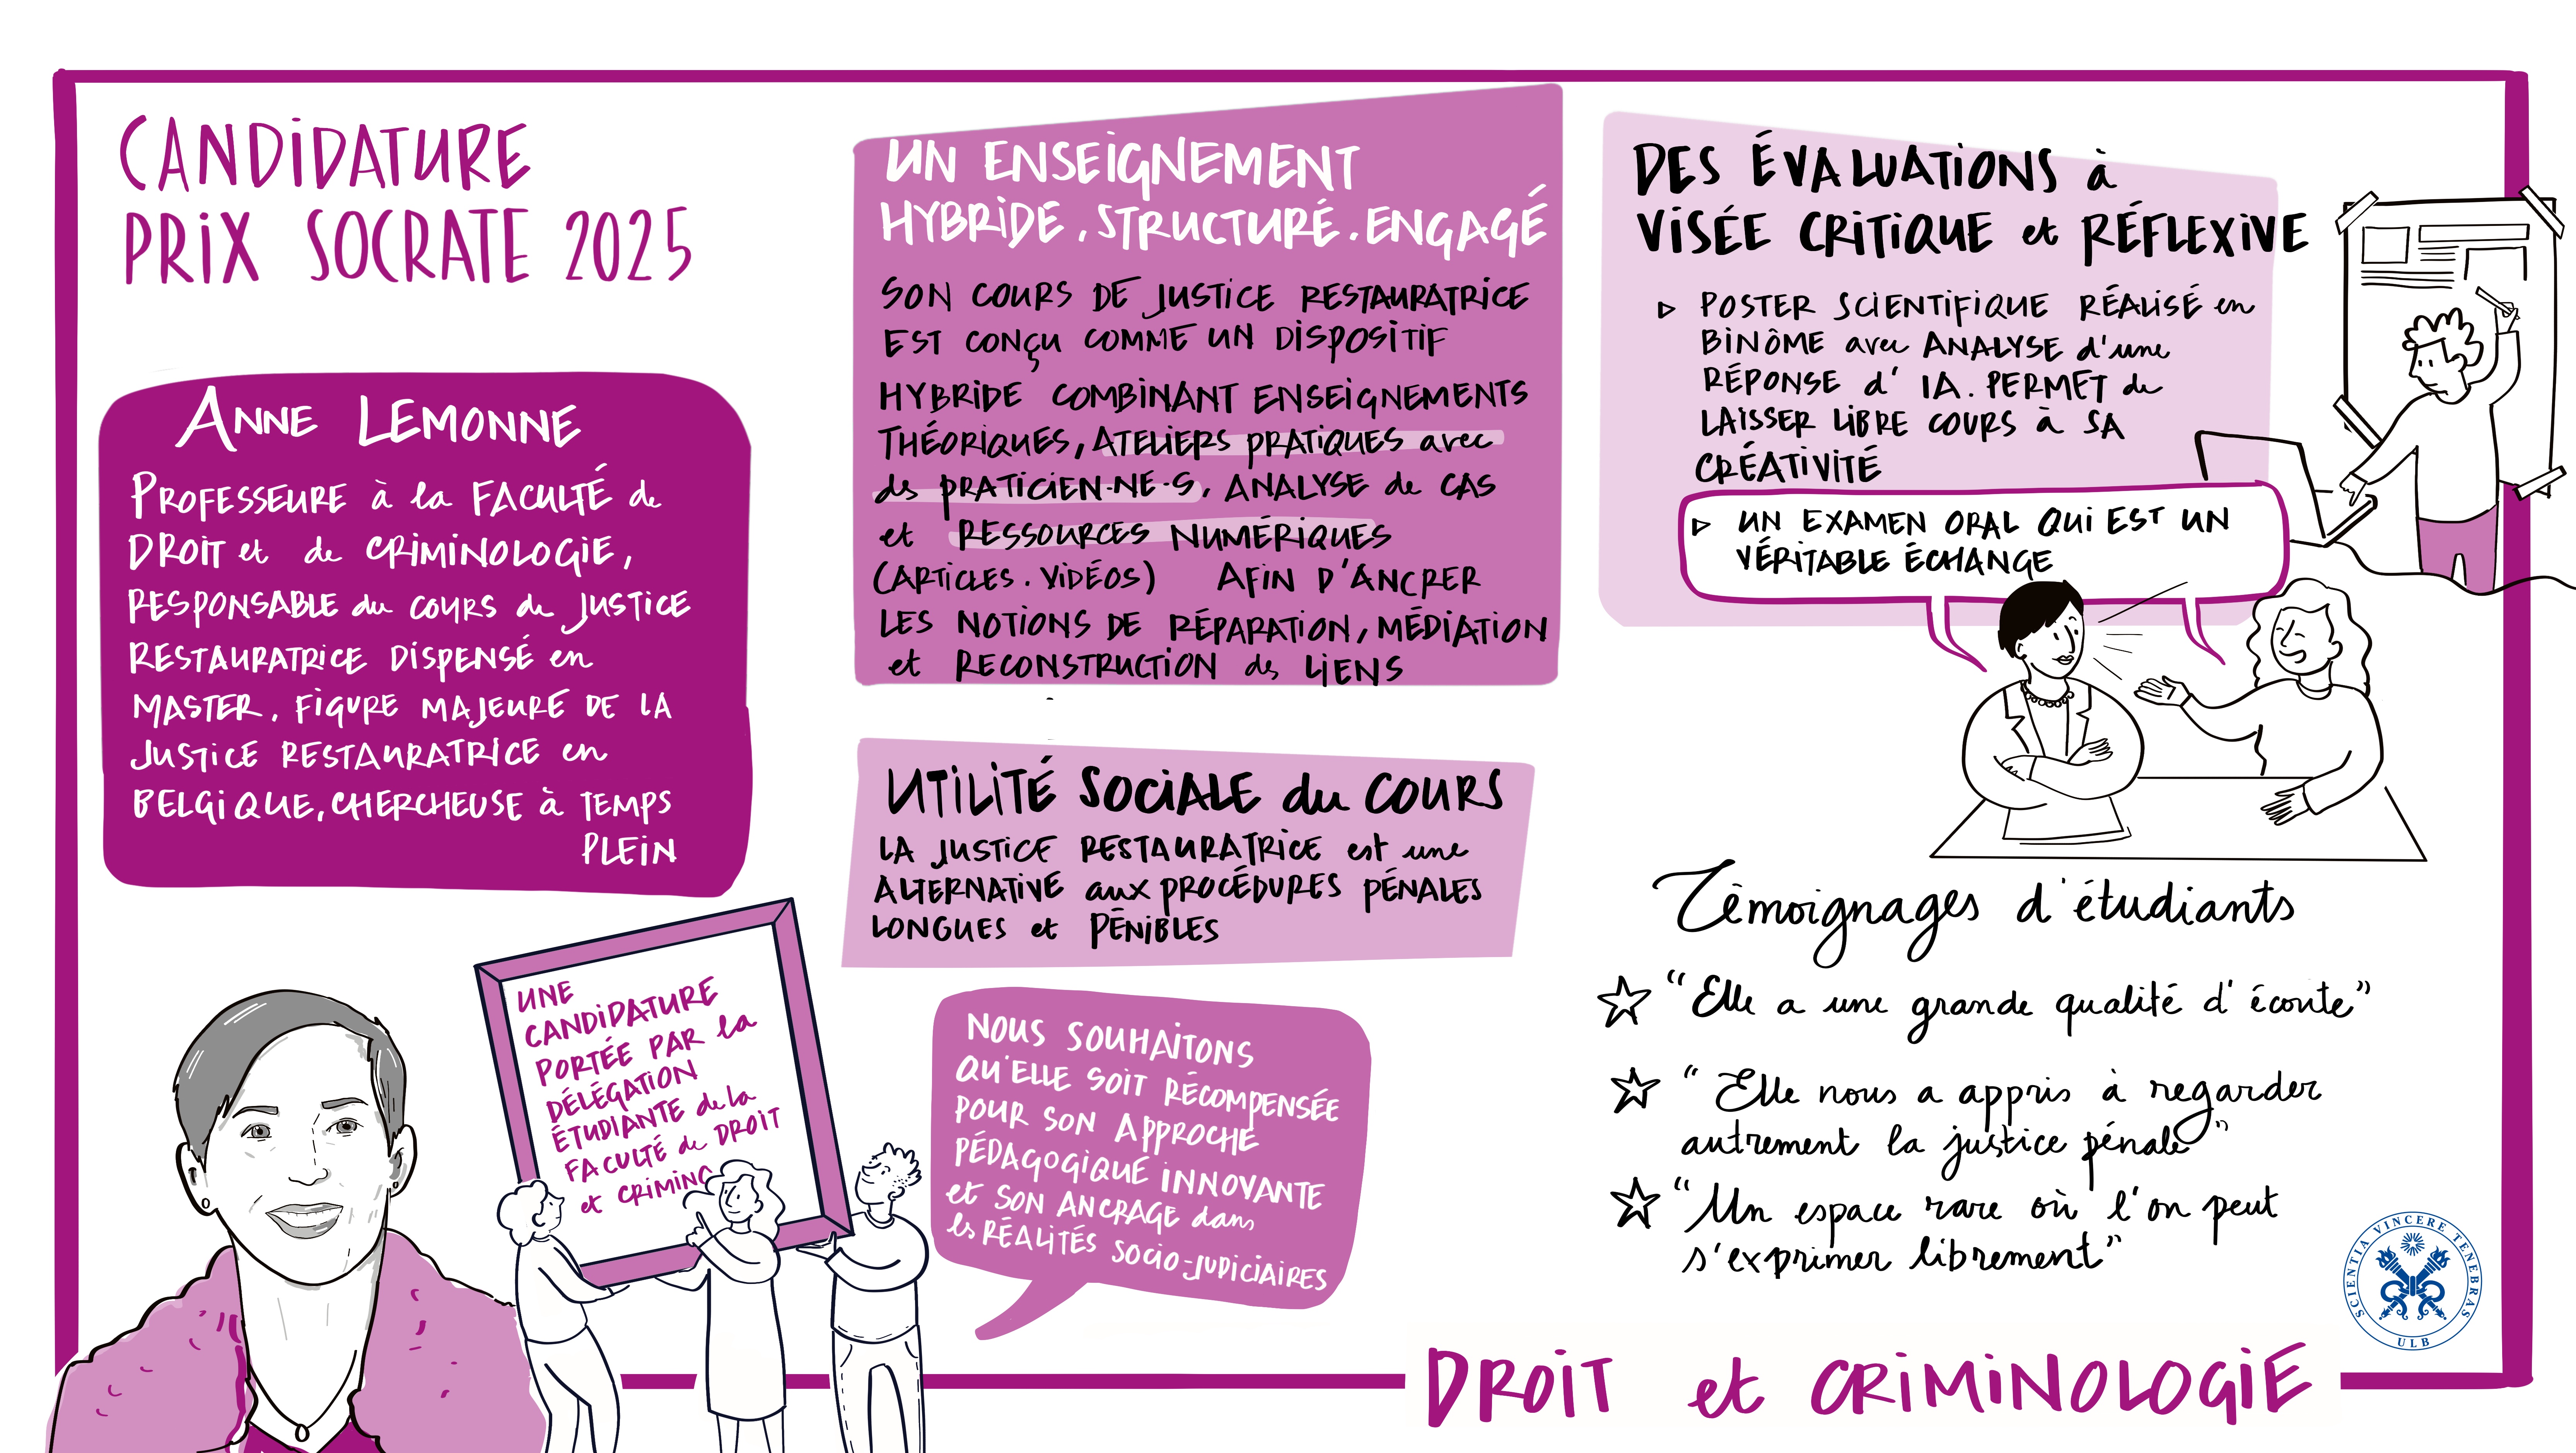 CANDIDATURE
PRIX SOCRATE 2025
ANNE LEMONNE
PROFESSEURE à la FACULTÉ de
DROIT et de CRIMINOLOGIE,
RESPONSABLE du COURS de JUSTICE
RESTAURATRICE DISPENSÉ en
MASTER, FIGURE MAJEURE DE LA
JUSTICE RESTAURATRICE en
BELGIQUE, CHERCHEUSE à TEMPS
PLEIN
UNE
CANDIDATURE
PORTÉE PAR la
DÉLÉGATION
ÉTUDIANTE de la
FACULTÉ de DROIT
et CRIMINO
UN ENSEIGNEMENT
HYBRIDE . STRUCTURÉ . ENGAGÉ
SON COURS DE JUSTICE RESTAURATRICE
EST CONÇU COMME UN DISPOSITIF
HYBRIDE COMBINANT ENSEIGNEMENTS
THÉORIQUES, ATELIERS PRATIQUES avec
des PRATICIEN·NE·S, ANALYSE de CAS
et RESSOURCES NUMÉRIQUES
(ARTICLES . VIDÉOS) AFIN D'ANCRER
LES NOTIONS DE RÉPARATION, MÉDIATION
et RECONSTRUCTION des LIENS
UTILITÉ SOCIALE du COURS
LA JUSTICE RESTAURATRICE est une
ALTERNATIVE aux PROCÉDURES PÉNALES
LONGUES et PÉNIBLES
NOUS SOUHAITONS
QU'ELLE SOIT RÉCOMPENSÉE
POUR SON APPROCHE
PÉDAGOGIQUE INNOVANTE
et SON ANCRAGE dans
les RÉALITÉS SOCIO-JUDICIAIRES
DES ÉVALUATIONS à
VISÉE CRITIQUE et RÉFLEXIVE
▷ POSTER SCIENTIFIQUE RÉALISÉ en
BINÔME avec ANALYSE d'une
RÉPONSE d' IA. PERMET de
LAISSER LIBRE COURS à SA
CRÉATIVITÉ
▷ UN EXAMEN ORAL QUI EST UN
VÉRITABLE ÉCHANGE
Témoignages d'étudiants
☆ "Elle a une grande qualité d'écoute"
☆ "Elle nous a appris à regarder
autrement la justice pénale"
☆ "Un espace rare où l'on peut
s'exprimer librement"
SCIENTIA VINCERE TENEBRAS
ULB
DROIT et CRIMINOLOGIE